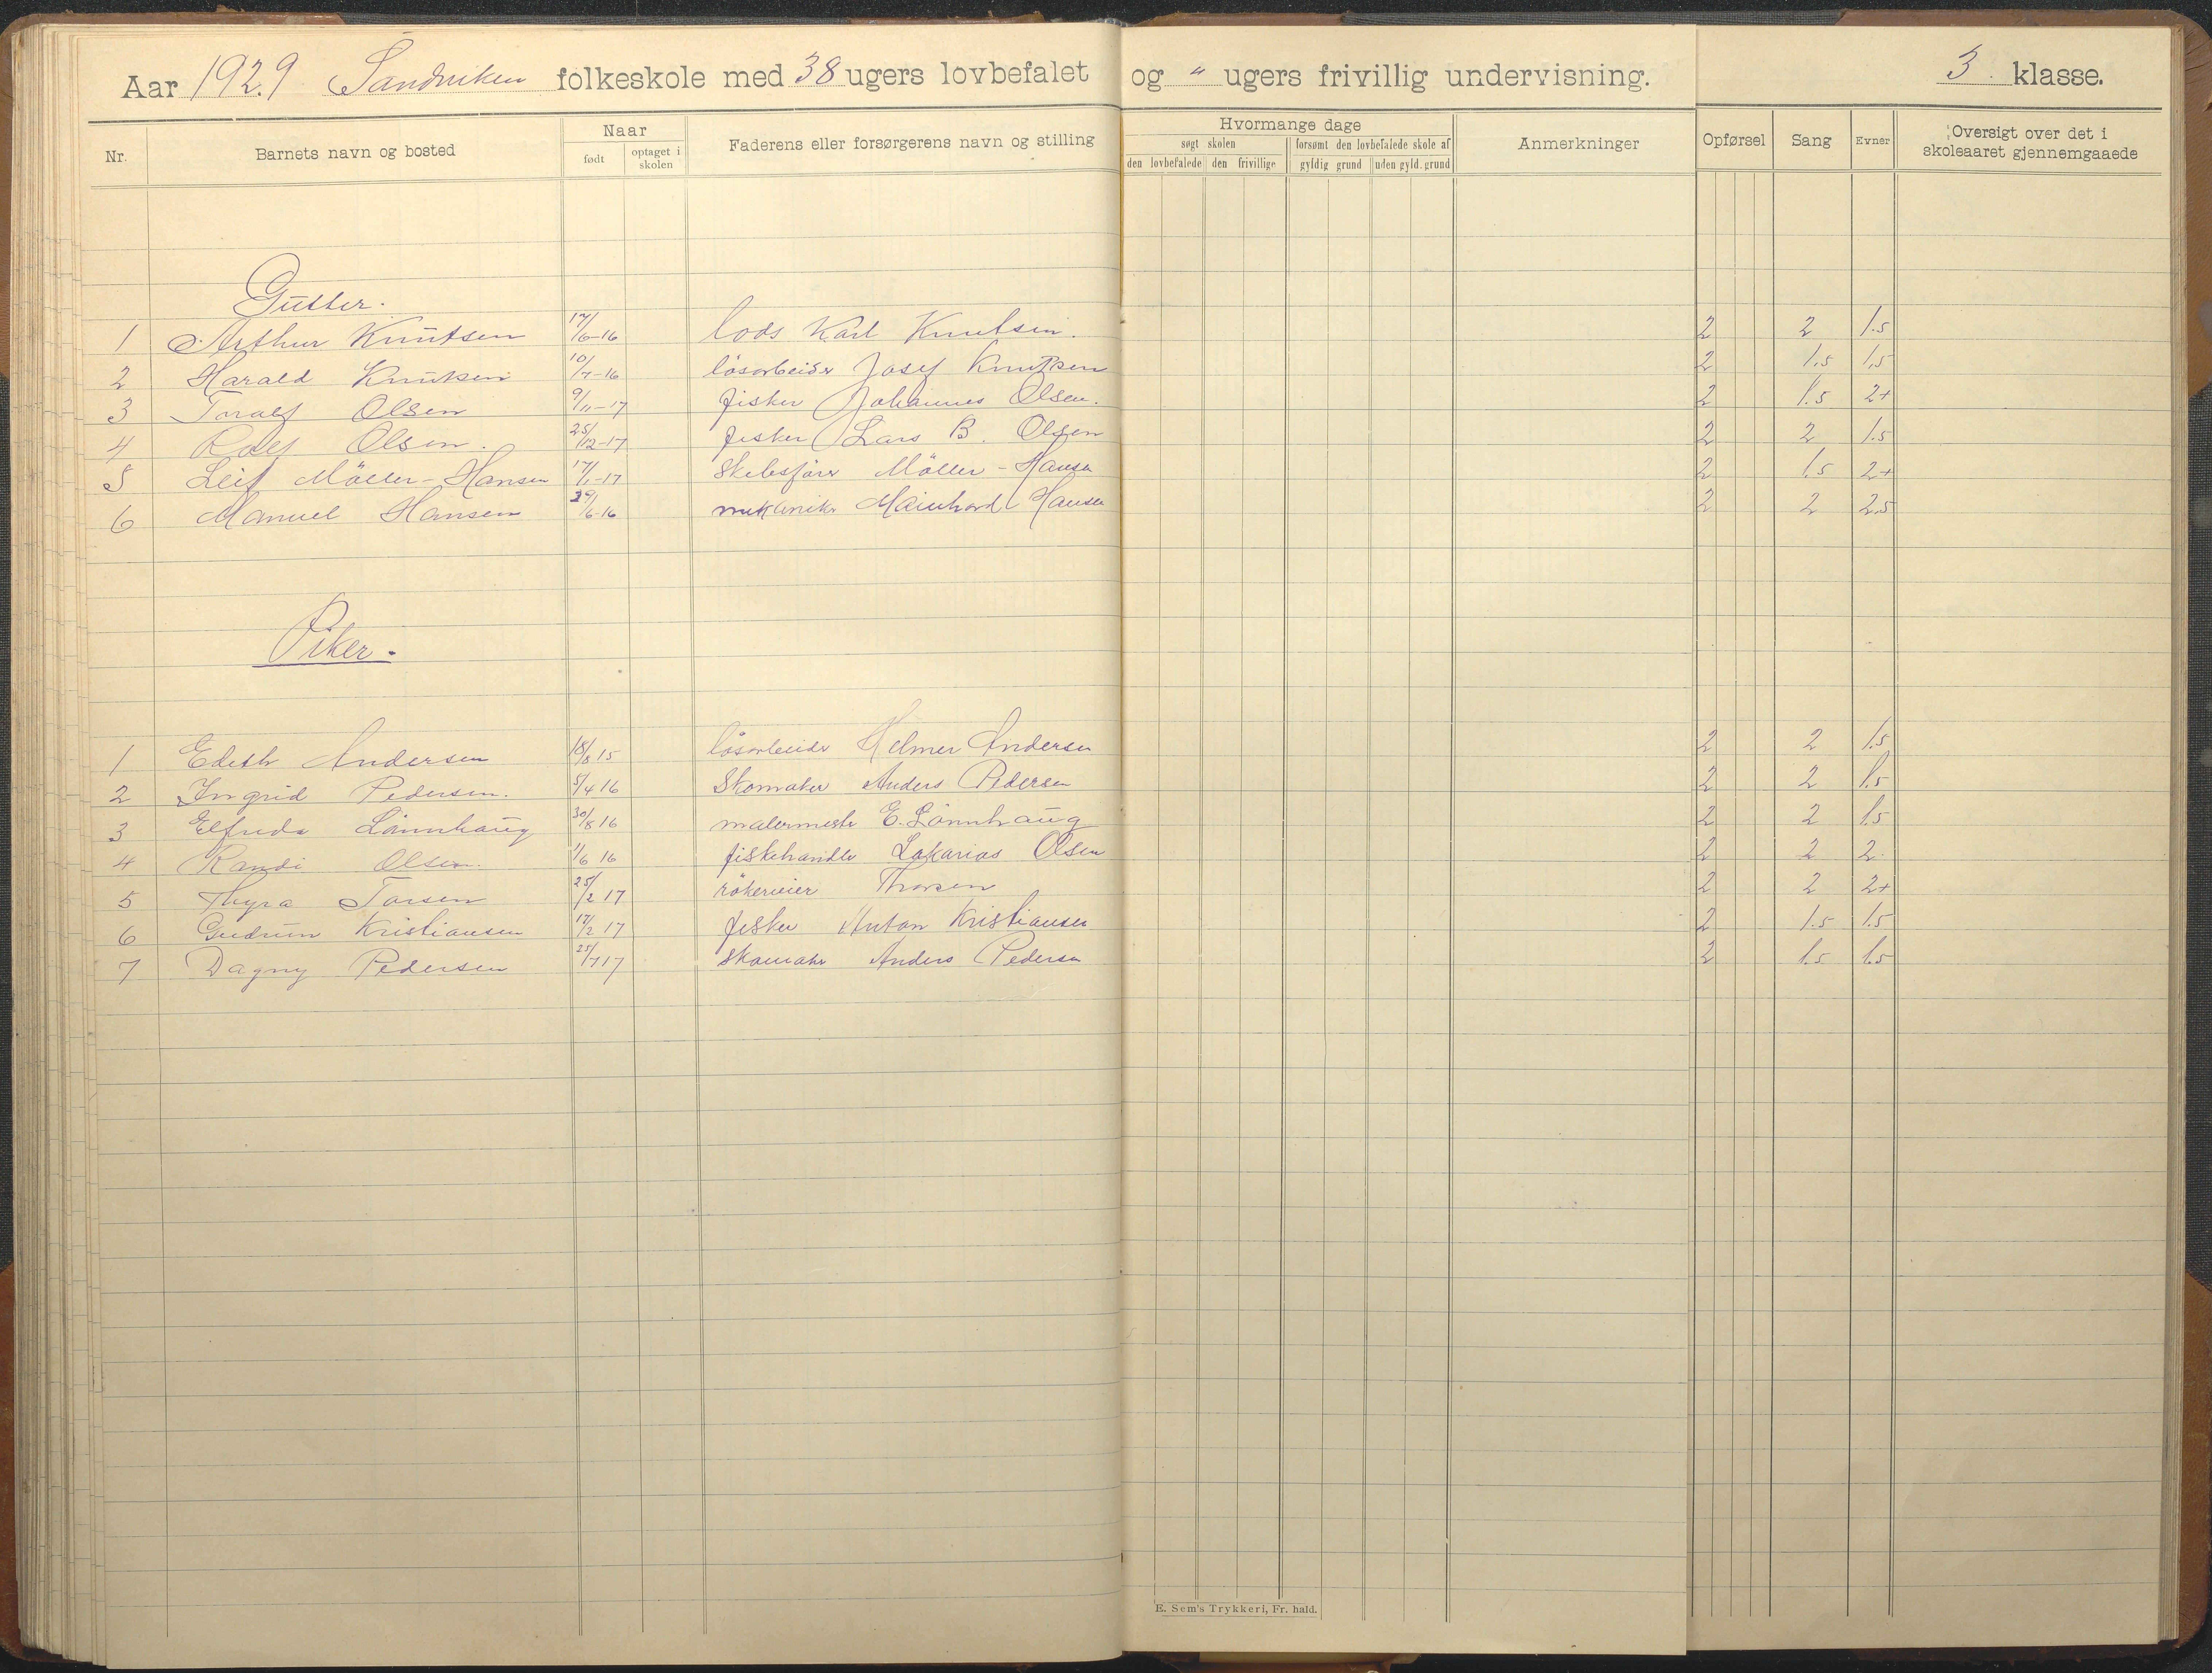 Aar 1929 Sandviken folkeskole med 38 ugers lovbefalet og " ugers frivillig undervisning. 3. klasse.
Nr. Barnets navn og bosted Naar født optaget i skolen Faderens eller forsørgerens navn og stilling Hvormange dage søgt skolen den lovbefalede den frivillige forsømt den lovbefalede skole af gyldig grund uden gyld. grund Anmerkninger Opførsel Sang Evner Oversigt over det i skoleaaret gjennemgaaede
Gutter.
1 Arthur Knutsen 17/6-16 lods Karl Knutsen. 2 2 1.5
2 Harald Knutsen 10/7-16 løsarbeider Josef Knutsen 2 1.5 1,5
3 Toralf Olsen 9/11-17 fisker Johannes Olsen. 2 1.5 2+
4 Rolf Olsen. 25/12-17 fisker Lars B. Olsen 2 2 1.5
5 Leif Möller-Hansen 17/1-17 Skibsfører Möller-Hansen 2 1.5 2+
6 Manuel Hansen /6-16 mekanike Mainhard Hansen 2 2 2.5
Piker.
1 Edith Andersen 18/8 15 løsarbeider Helmer Andersen 2 2 1.5
2 Ingrid Pedersen. 5/4 16 Skomaker Anders Pedersen 2 2 1.5
3 Elfrida Lönnhaug 30/8 16 malermester E. Lönnhaug 2 2 1.5
4 Randi Olsen. 1/6 16 fiskehandler Sakarias Olsen 2 2 2.
5 Thyra Torsen 25/2 17 rökerieier Thorsen 2 2 2+
6 Gudrun Kristiansen 17/2 17 fisker Anton Kristiansen 2 1.5 1.5
7 Dagny Pedersen 25/7 17 Skomaker Anders Pedersen 2 1.5 1.5
E. Sem's Trykkeri, Fr. hald.